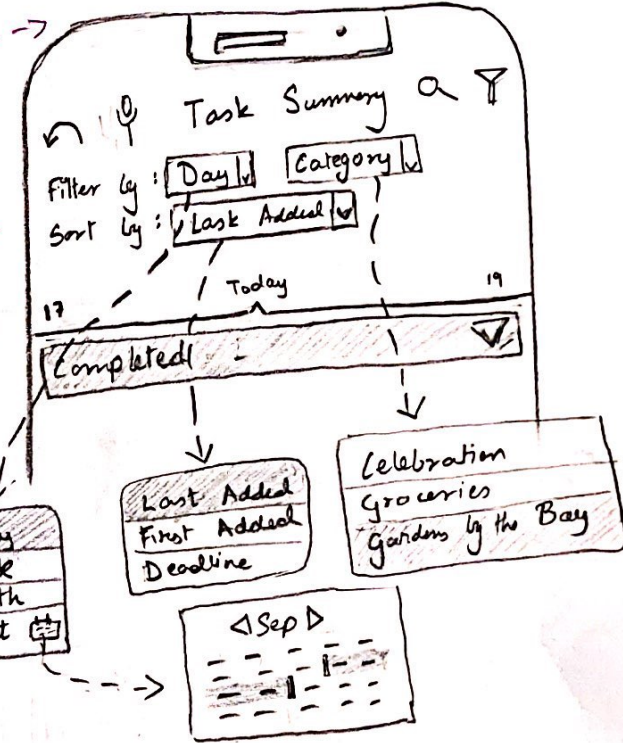 Task Summary
Filter by : Day Category
Sort by : Last Added
Today
17 19
Completed
Last Added
First Added
Deadline
Celebration
Groceries
Gardens by the Bay
Sep